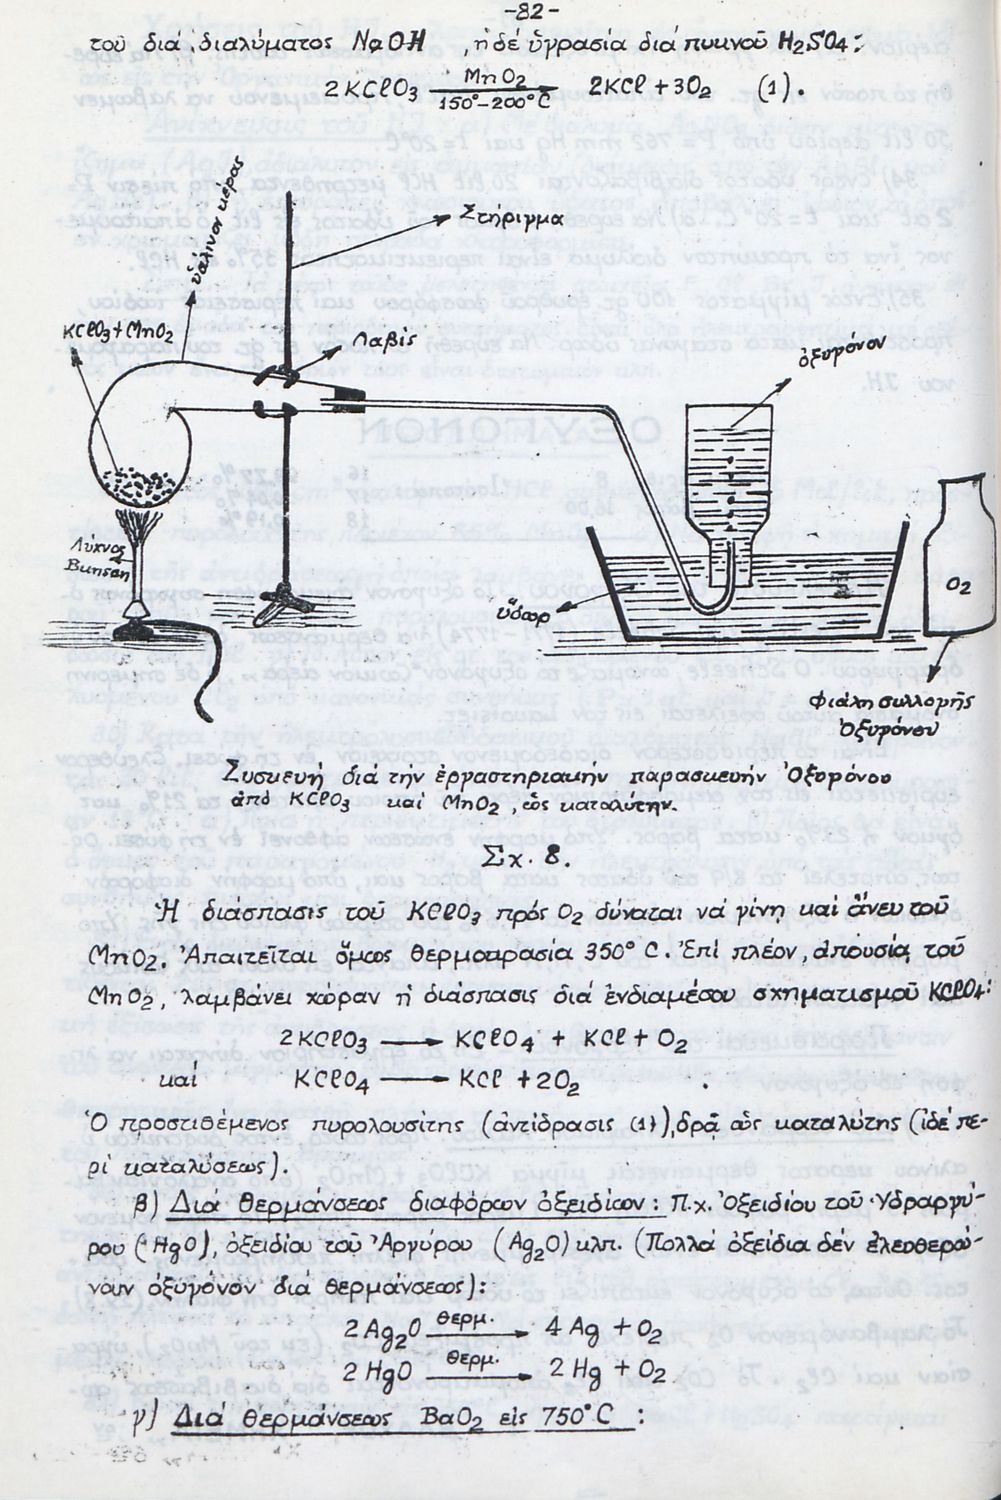 -82-
τοῦ διά διαλύματος NaOH, ἡ δέ ὑγρασία διά πυκνοῦ H₂SO₄:
2KClO₃ MnO₂ 150°-200°C → 2KCl + 3O₂ (1).
ὑάλινον κέρας
Στήριγμα
KClO₃+MnO₂
Λαβίς
ὀξυγόνον
Λύχνος
Bunsen
ὕδωρ
O₂
Φιάλη συλλογῆς
Ὀξυγόνου
Συσκευή διά την ἐργαστηριακήν παρασκευήν Ὀξυγόνου
ἀπό KClO₃ καί MnO₂, ὡς καταλύτην.
Σχ. 8.
Ἡ διάσπασις τοῦ KClO₃ πρός O₂ δύναται νά γίνη καί ἄνευ τοῦ
MnO₂. Ἀπαιτεῖται ὅμως θερμοκρασία 350°C. Ἐπί πλέον, ἀπουσίᾳ τοῦ
MnO₂, λαμβάνει χώραν ἡ διάσπασις διά ἐνδιαμέσου σχηματισμοῦ KClO₄:
2KClO₃ → KClO₄ + KCl + O₂
καί KClO₄ → KCl + 2O₂
Ὁ προστιθέμενος πυρολουσίτης (ἀντίδρασις (1)), δρᾷ ὡς καταλύτης (ἰδέ πε-
ρί καταλύσεως).
β) Διά θερμάνσεως διαφόρων ὀξειδίων: Π.χ. Ὀξειδίου τοῦ Ὑδραργύ-
ρου (HgO), ὀξειδίου τοῦ Ἀργύρου (Ag₂O) κλπ. (Πολλά ὀξείδια δέν ἐλευθερώ-
νουν ὀξυγόνον διά θερμάνσεως):
2Ag₂O θερμ. → 4Ag + O₂
2HgO θερμ. → 2Hg + O₂
γ) Διά θερμάνσεως BaO₂ εἰς 750°C :